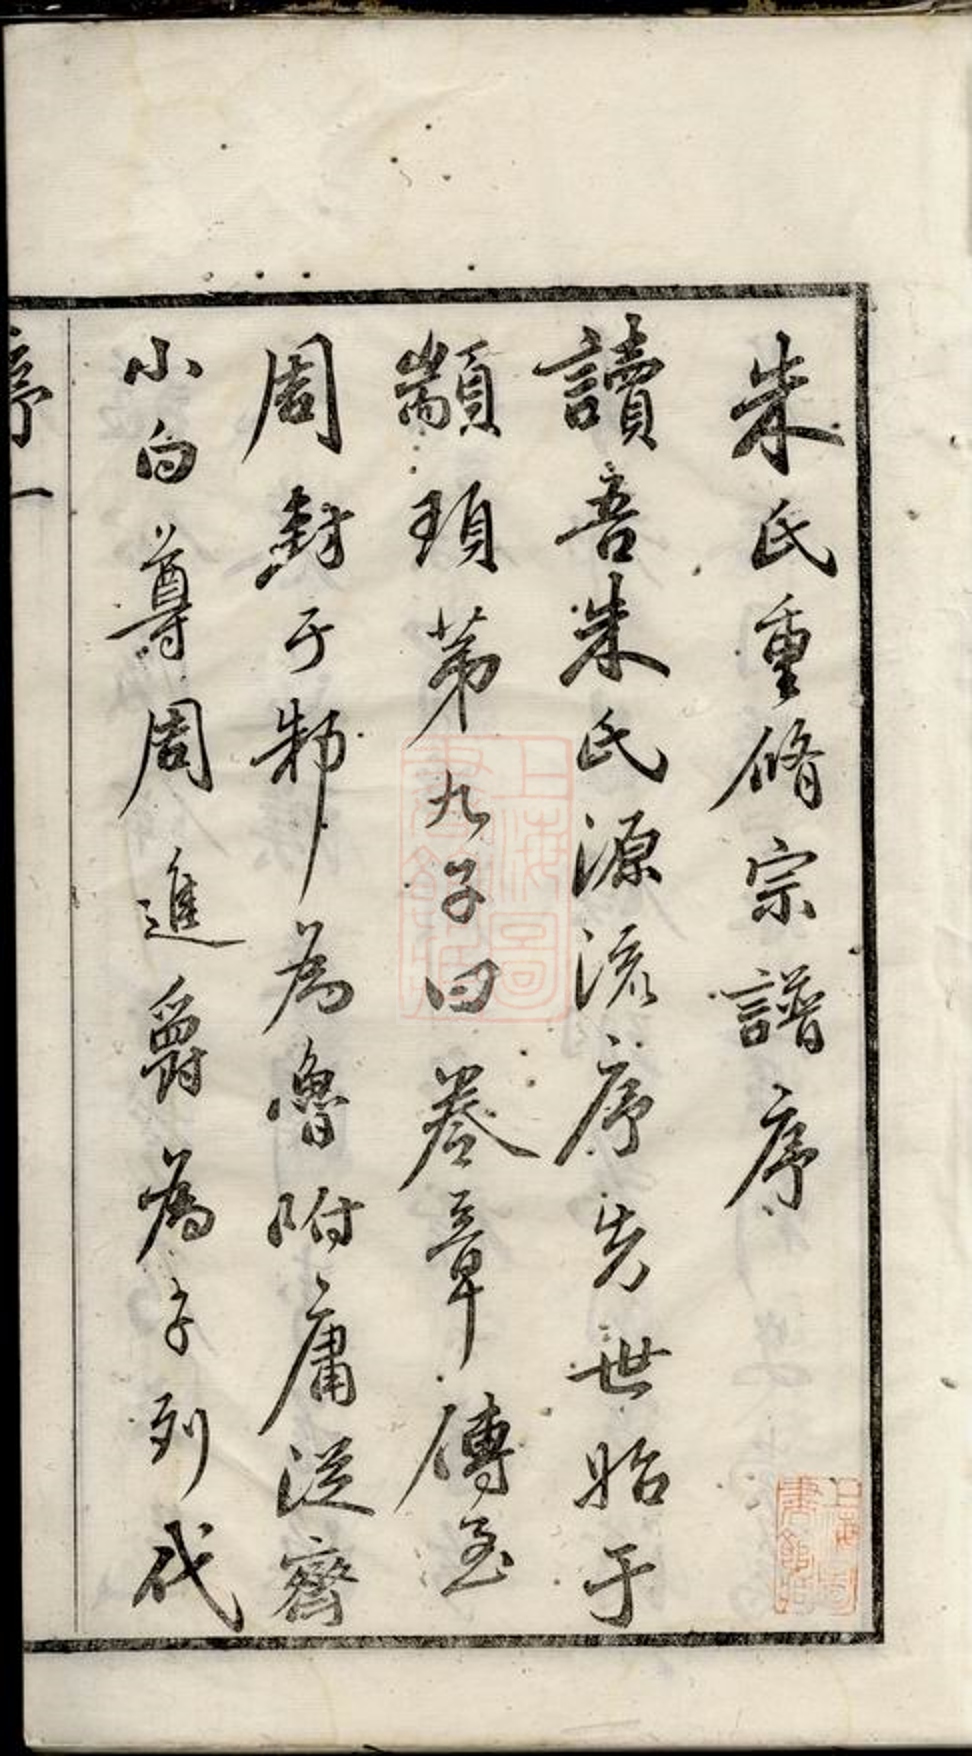 朱氏重脩宗譜序
讀吾朱氏源流序先世始于
顓頊第九子曰卷章傳至
周封于邾為魯附庸從齊
小白尊周進爵為子列代
序一
上海圖書館藏
上海圖書館藏